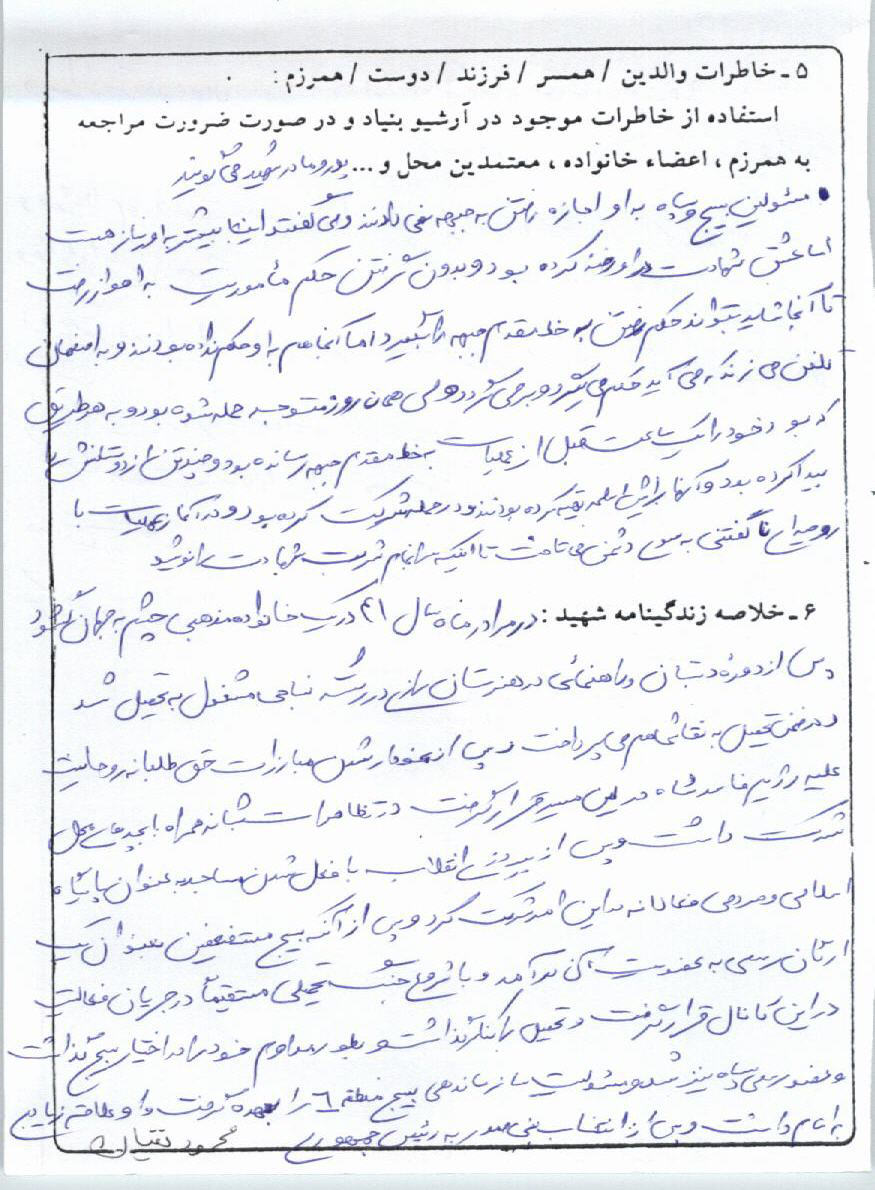 ۵ ـ خاطرات والدین / همسر / فرزند / دوست / همرزم :
استفاده از خاطرات موجود در آرشیو بنیاد و در صورت ضرورت مراجعه
به همرزم ، اعضاء خانواده ، معتمدین محل و ... پدر و مادر شهید می گویند
• مسئولین بسیج و سپاه به او اجازه رفتن به جبهه نمی دادند و می گفتند اینجا بیشتر به او نیاز هست
اما عشق شهادت در او رخنه کرده بود و بدون گرفتن حکم مأموریت به اهواز رفت
تا آنجا شاید بتواند حکم رفتن به خط مقدم جبهه را بگیرد اما آنجا هم به او حکم نداده بودند و به اصفهان
تلفن می زند که می آید حکم می گیرد و بر می گردد ولی همان روز متوجه حمله شده بود و به هر طریق
که بود خود را یک ساعت قبل از عملیات به خط مقدم جبهه رسانده بود و چند تن از دوستانش را
پیدا کرده بود و آنها برایش اسلحه تهیه کرده بودند و در حمله شرکت کرده بود و در آغاز عملیات با
روحیه ای نا گفتنی به سوی دشمن می تاخت تا اینکه سرانجام شربت شهادت را نوشید
۶ ـ خلاصه زندگینامه شهید : در مرداد ماه سال ۴۱ در یک خانواده مذهبی چشم به جهان گشود
پس از دوره دبستان و راهنمائی در هنرستان در رشته نساجی مشغول به تحصیل شد
و در ضمن تحصیل به نقاشی هم می پرداخت و پس از نمودار شدن مبارزات حق طلبانه روحانیت
علیه رژیم فاسد شاه در این مسیر قرار گرفت در تظاهرات شبانه همراه با بچه های محل
شرکت داشت و پس از پیروزی انقلاب با فعال شدن مساجد به عنوان پایگاه
اسلامی و مردمی فعالانه در این امر شرکت کرد و پس از آنکه بسیج مستضعفین بعنوان یک
ارگان رسمی به عضویت آن درآمد و با شروع جنگ تحمیلی مستقیماً در جریان فعالیت
در این کانال قرار گرفت و تحصیل را کنار گذاشت و بطور مداوم خود را در اختیار بسیج گذاشت
و عضو رسمی سپاه نیز شد و مسئولیت سازماندهی بسیج منطقه ۶ را بعهده گرفت و او علاقه زیادی
به امام داشت و پس از انتخاب بنی صدر به رئیس جمهوری محمود